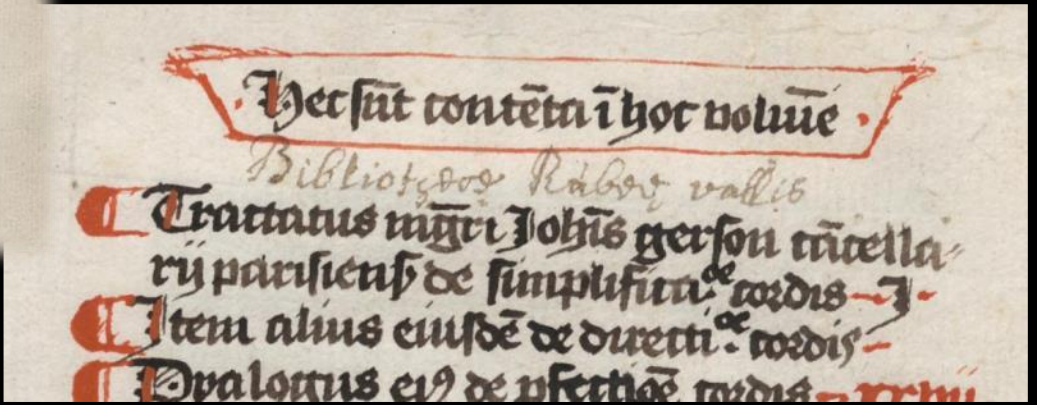 Hec sūt contēta ī hoc volūıē
Bibliothecæ Rubeæ vallis
Tractatus mgr̄i Johīs gerson cācella
rij parisiens̄ de simplificati⸱oe cordis – J ⸱
Item alius eiusdē de directi⸱oe cordis –
Dyalogus eiꝰ de ꝑfectiōe cordis – xxiiij